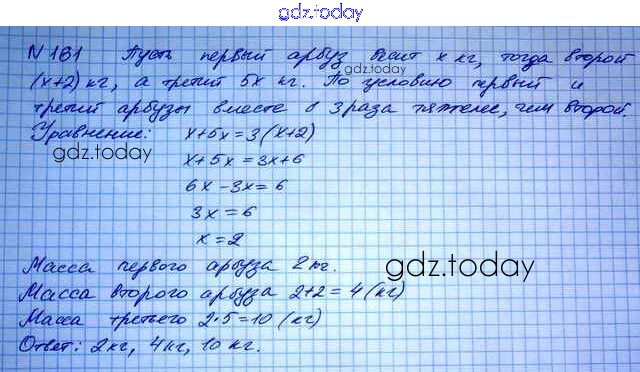 gdz.today
N 161 Пусть первый арбуз весит x кг, тогда второй
gdz.today
(x+2) кг, а третий 5x кг. По условию первый и
третий арбузы вместе в 3 раза тяжелее, чем второй.
Уравнение: x+5x=3(x+2)
gdz.today
x+5x=3x+6
6x-3x=6
3x=6
x=2
Масса первого арбуза 2 кг.
gdz.today
Масса второго арбуза 2+2=4 (кг)
Масса третьего 2·5=10 (кг)
Ответ: 2 кг, 4 кг, 10 кг.